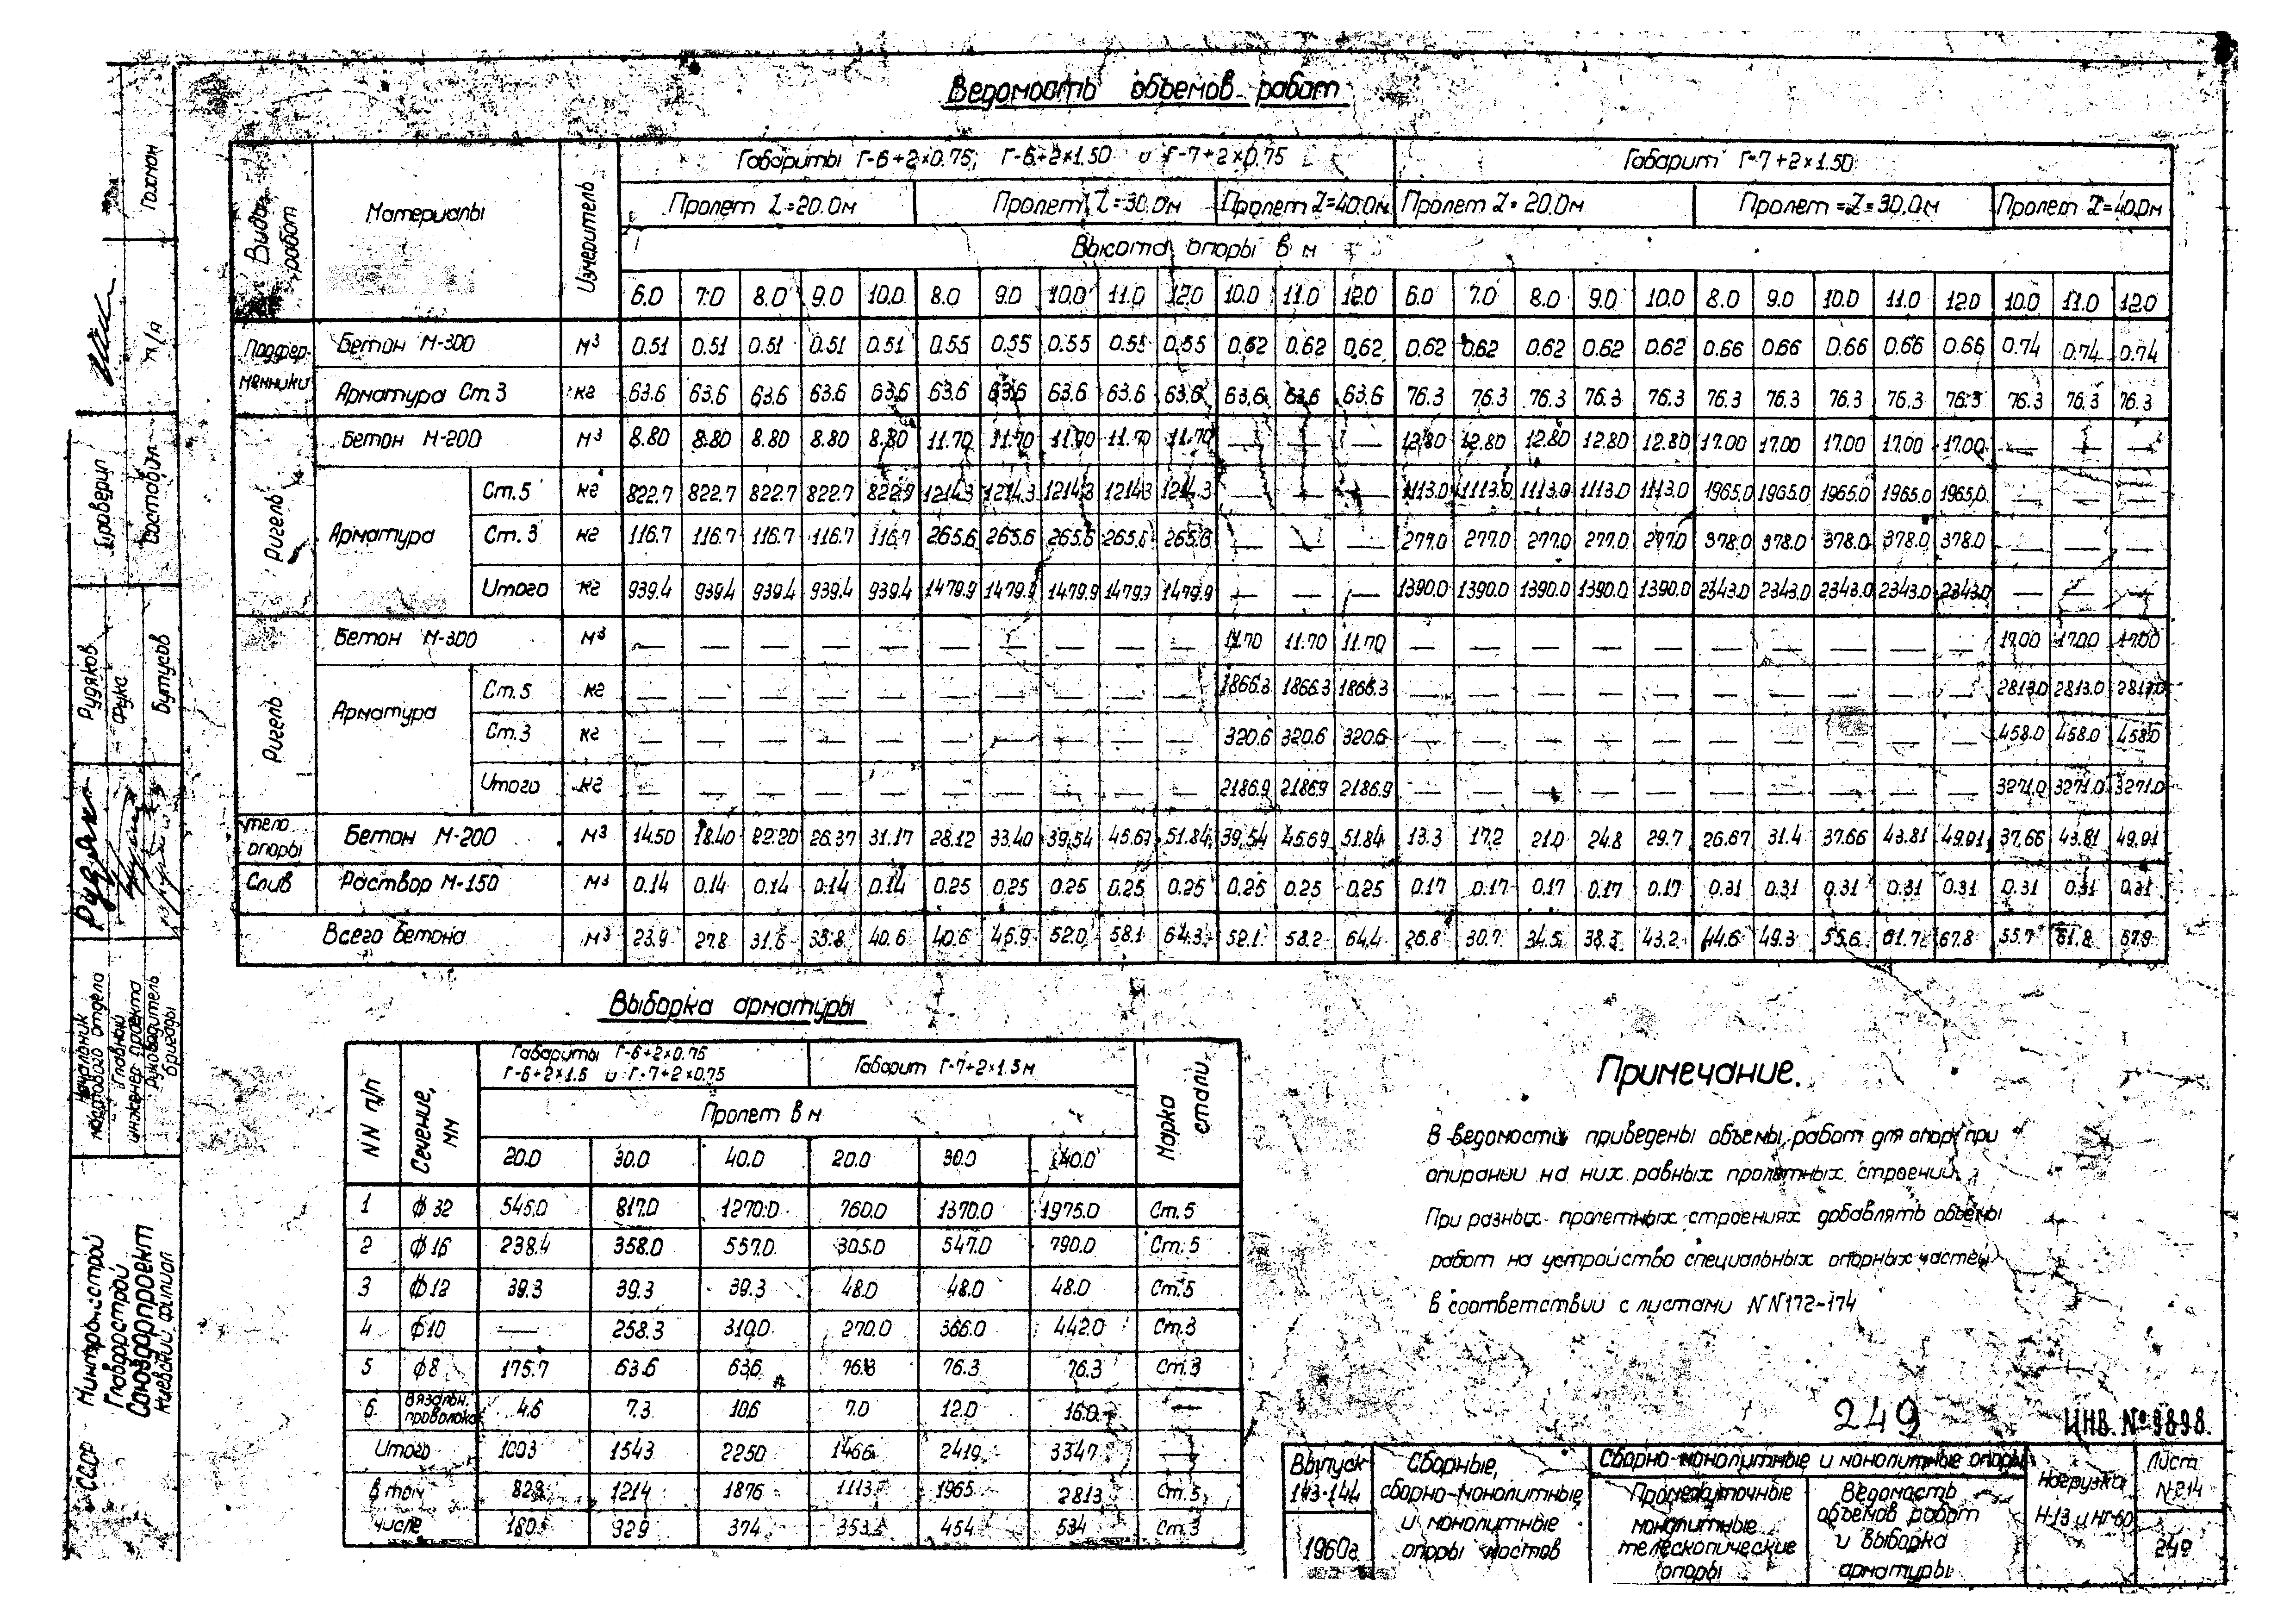 Ведомость объемов работ
Виды работ
Материалы
Измеритель
Габариты Г-6+2×0.75; Г-6+2×1.50 и Г-7+2×0.75
Габарит Г-7+2×1.50
Пролет L=20.0м
Пролет L=30.0м
Пролет L=40.0м
Пролет L=20.0м
Пролет L=30.0м
Пролет L=40.0м
Высота опоры в м
6.0 7.0 8.0 9.0 10.0 8.0 9.0 10.0 11.0 12.0 10.0 11.0 12.0 6.0 7.0 8.0 9.0 10.0 8.0 9.0 10.0 11.0 12.0 10.0 11.0 12.0
Подфер-
менники
Бетон М-300 м³ 0.51 0.51 0.51 0.51 0.51 0.55 0.55 0.55 0.55 0.55 0.62 0.62 0.62 0.62 0.62 0.62 0.62 0.62 0.66 0.66 0.66 0.66 0.66 0.74 0.74 0.74
Арматура Ст.3 кг 63.6 63.6 63.6 63.6 63.6 63.6 63.6 63.6 63.6 63.6 63.6 63.6 63.6 76.3 76.3 76.3 76.3 76.3 76.3 76.3 76.3 76.3 76.3 76.3 76.3 76.3
Ригель
Бетон М-200 м³ 8.80 8.80 8.80 8.80 8.80 11.70 11.70 11.70 11.70 11.70 — — — 12.80 12.80 12.80 12.80 12.80 17.00 17.00 17.00 17.00 17.00 — — —
Арматура
Ст.5 кг 822.7 822.7 822.7 822.7 822.7 1214.3 1214.3 1214.3 1214.3 1214.3 — — — 1113.0 1113.0 1113.0 1113.0 1113.0 1965.0 1965.0 1965.0 1965.0 1965.0 — — —
Ст.3 кг 116.7 116.7 116.7 116.7 116.7 265.6 265.6 265.6 265.6 265.6 — — — 277.0 277.0 277.0 277.0 277.0 378.0 378.0 378.0 378.0 378.0 — — —
Итого кг 939.4 939.4 939.4 939.4 939.4 1479.9 1479.9 1479.9 1479.9 1479.9 — — — 1390.0 1390.0 1390.0 1390.0 1390.0 2343.0 2343.0 2343.0 2343.0 2343.0 — — —
Ригель
Бетон М-300 м³ — — — — — — — — — — 11.70 11.70 11.70 — — — — — — — — — — 17.00 17.00 17.00
Арматура
Ст.5 кг — — — — — — — — — — 1866.3 1866.3 1866.3 — — — — — — — — — — 2813.0 2813.0 2813.0
Ст.3 кг — — — — — — — — — — 320.6 320.6 320.6 — — — — — — — — — — 458.0 458.0 458.0
Итого кг — — — — — — — — — — 2186.9 2186.9 2186.9 — — — — — — — — — — 3271.0 3271.0 3271.0
тело опоры
Бетон М-200 м³ 14.50 18.40 22.20 26.37 31.17 28.12 33.40 39.54 45.67 51.84 39.54 45.69 51.84 13.3 17.2 21.0 24.8 29.7 26.67 31.4 37.66 43.81 49.91 37.66 43.81 49.91
Слив Раствор М-150 м³ 0.14 0.14 0.14 0.14 0.14 0.25 0.25 0.25 0.25 0.25 0.25 0.25 0.25 0.17 0.17 0.17 0.17 0.17 0.31 0.31 0.31 0.31 0.31 0.31 0.31 0.31
Всего бетона м³ 23.9 27.8 31.6 35.8 40.6 40.6 45.9 52.0 58.1 64.3 52.1 58.2 64.4 26.8 30.7 34.5 38.3 43.2 44.6 49.3 55.6 61.7 67.8 55.7 61.8 67.9
Выборка арматуры
NN п/п
Сечение, мм
Габариты Г-6+2×0.75
Г-6+2×1.5 и Г-7+2×0.75
Габарит Г-7+2×1.5м
Марка стали
Пролет в м
20.0 30.0 40.0 20.0 30.0 40.0
1 ф32 545.0 817.0 1270.0 760.0 1370.0 1975.0 Ст.5
2 ф16 238.4 358.0 557.0 305.0 547.0 790.0 Ст.5
3 ф12 39.3 39.3 39.3 48.0 48.0 48.0 Ст.5
4 ф10 — 258.3 310.0 270.0 366.0 442.0 Ст.3
5 ф8 175.7 63.6 63.6 76.3 76.3 76.3 Ст.3
6 вязальн. проволока 4.6 7.3 10.6 7.0 12.0 16.0 —
Итого 1003 1543 2250 1466 2419 3347 —
в том 823 1214 1876 1113 1965 2813 Ст.5
числе 180 329 374 353 454 534 Ст.3
Примечание.
В ведомости приведены объемы работ для опор при
опирании на них равных пролетных строений.
При разных пролетных строениях добавлять объемы
работ на устройство специальных опорных частей
в соответствии с листами NN172-174
249
ИНВ.№9898.
Выпуск
143-144
1960г.
Сборные,
сборно-монолитные
и монолитные
опоры мостов
Сборно-монолитные и монолитные опоры
Промежуточные
монолитные
телескопические
опоры
Ведомость
объемов работ
и выборка
арматуры
Нагрузка
Н-13 и НГ-60
Лист
N214
249
Гохман
п/п
Проверил
Составил
Рудяков
Фукс
Бутусов
Начальник
мостового отдела
Главный
инженер проекта
Руководитель
бригады
СССР
Минтрансстрой
Главдорстрой
Союздорпроект
Киевский филиал